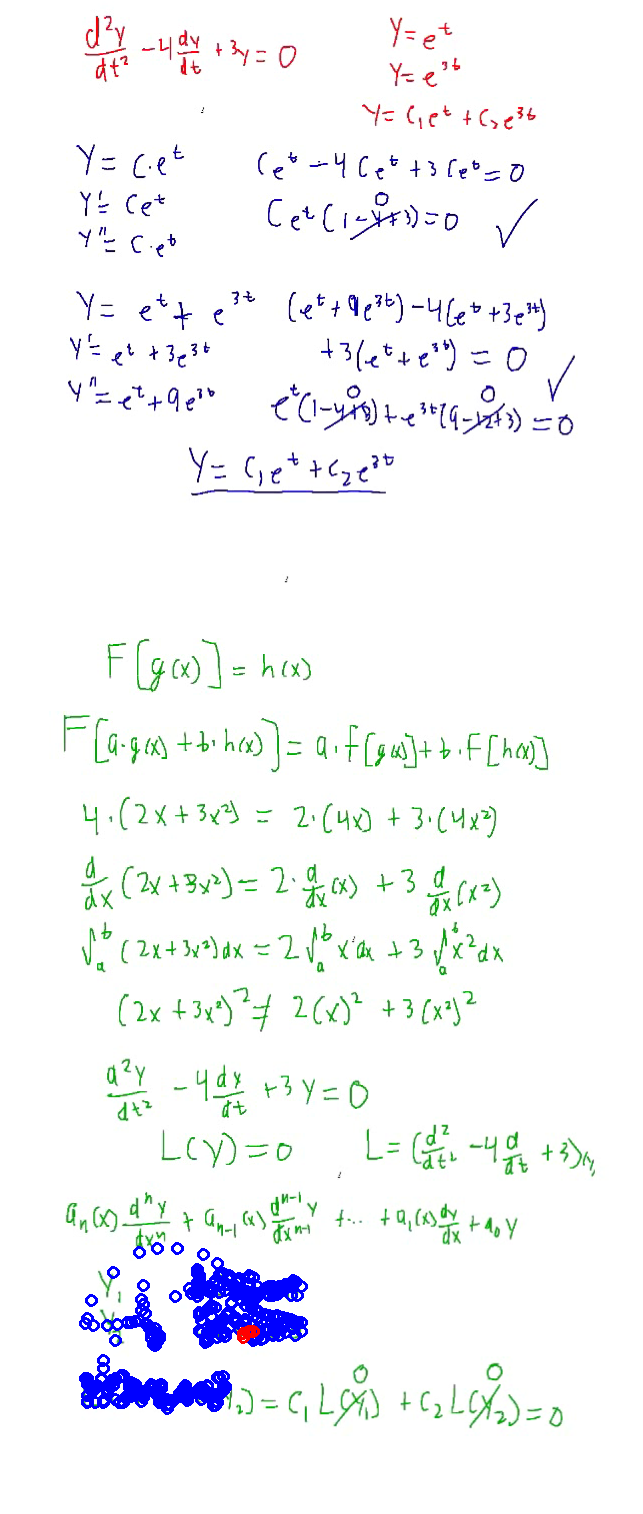 d²y/dt² - 4 dy/dt + 3y = 0
y = e^t
y = e^3t
y = C₁e^t + C₂e^3t
y = C·e^t
Ce^t - 4Ce^t + 3Ce^t = 0
y' = Ce^t
Ce^t(1-4+3) = 0 ✓
0
y'' = C·e^t
y = e^t + e^3t
(e^t + 9e^3t) - 4(e^t + 3e^3t)
y' = e^t + 3e^3t
+3(e^t + e^3t) = 0 ✓
y'' = e^t + 9e^3t
0 0
e^t(1-4+3) + e^3t(9-12+3) = 0
y = C₁e^t + C₂e^3t
F[g(x)] = h(x)
F[a·g(x) + b·h(x)] = a·F[g(x)] + b·F[h(x)]
4·(2x + 3x²) = 2·(4x) + 3·(4x²)
d/dx (2x + 3x²) = 2·d/dx (x) + 3 d/dx (x²)
∫_a^b (2x + 3x²)dx = 2∫_a^b x dx + 3∫_a^b x² dx
(2x + 3x²)² ≠ 2(x)² + 3(x²)²
d²y/dt² - 4 dy/dt + 3y = 0
L(y) = 0
L = (d²/dt² - 4 d/dt + 3)
aₙ(x) dⁿy/dxⁿ + aₙ₋₁(x) dⁿ⁻¹y/dxⁿ⁻¹ + ... + a₁(x) dy/dx + a₀y
y₁
0 0
y₂) = C₁L(y₁) + C₂L(y₂) = 0